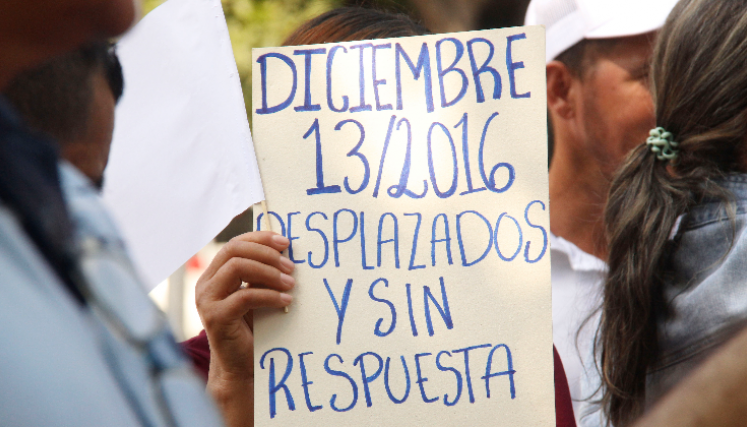 DICIEMBRE
13/2016
DESPLAZADOS
Y SIN
RESPUESTA